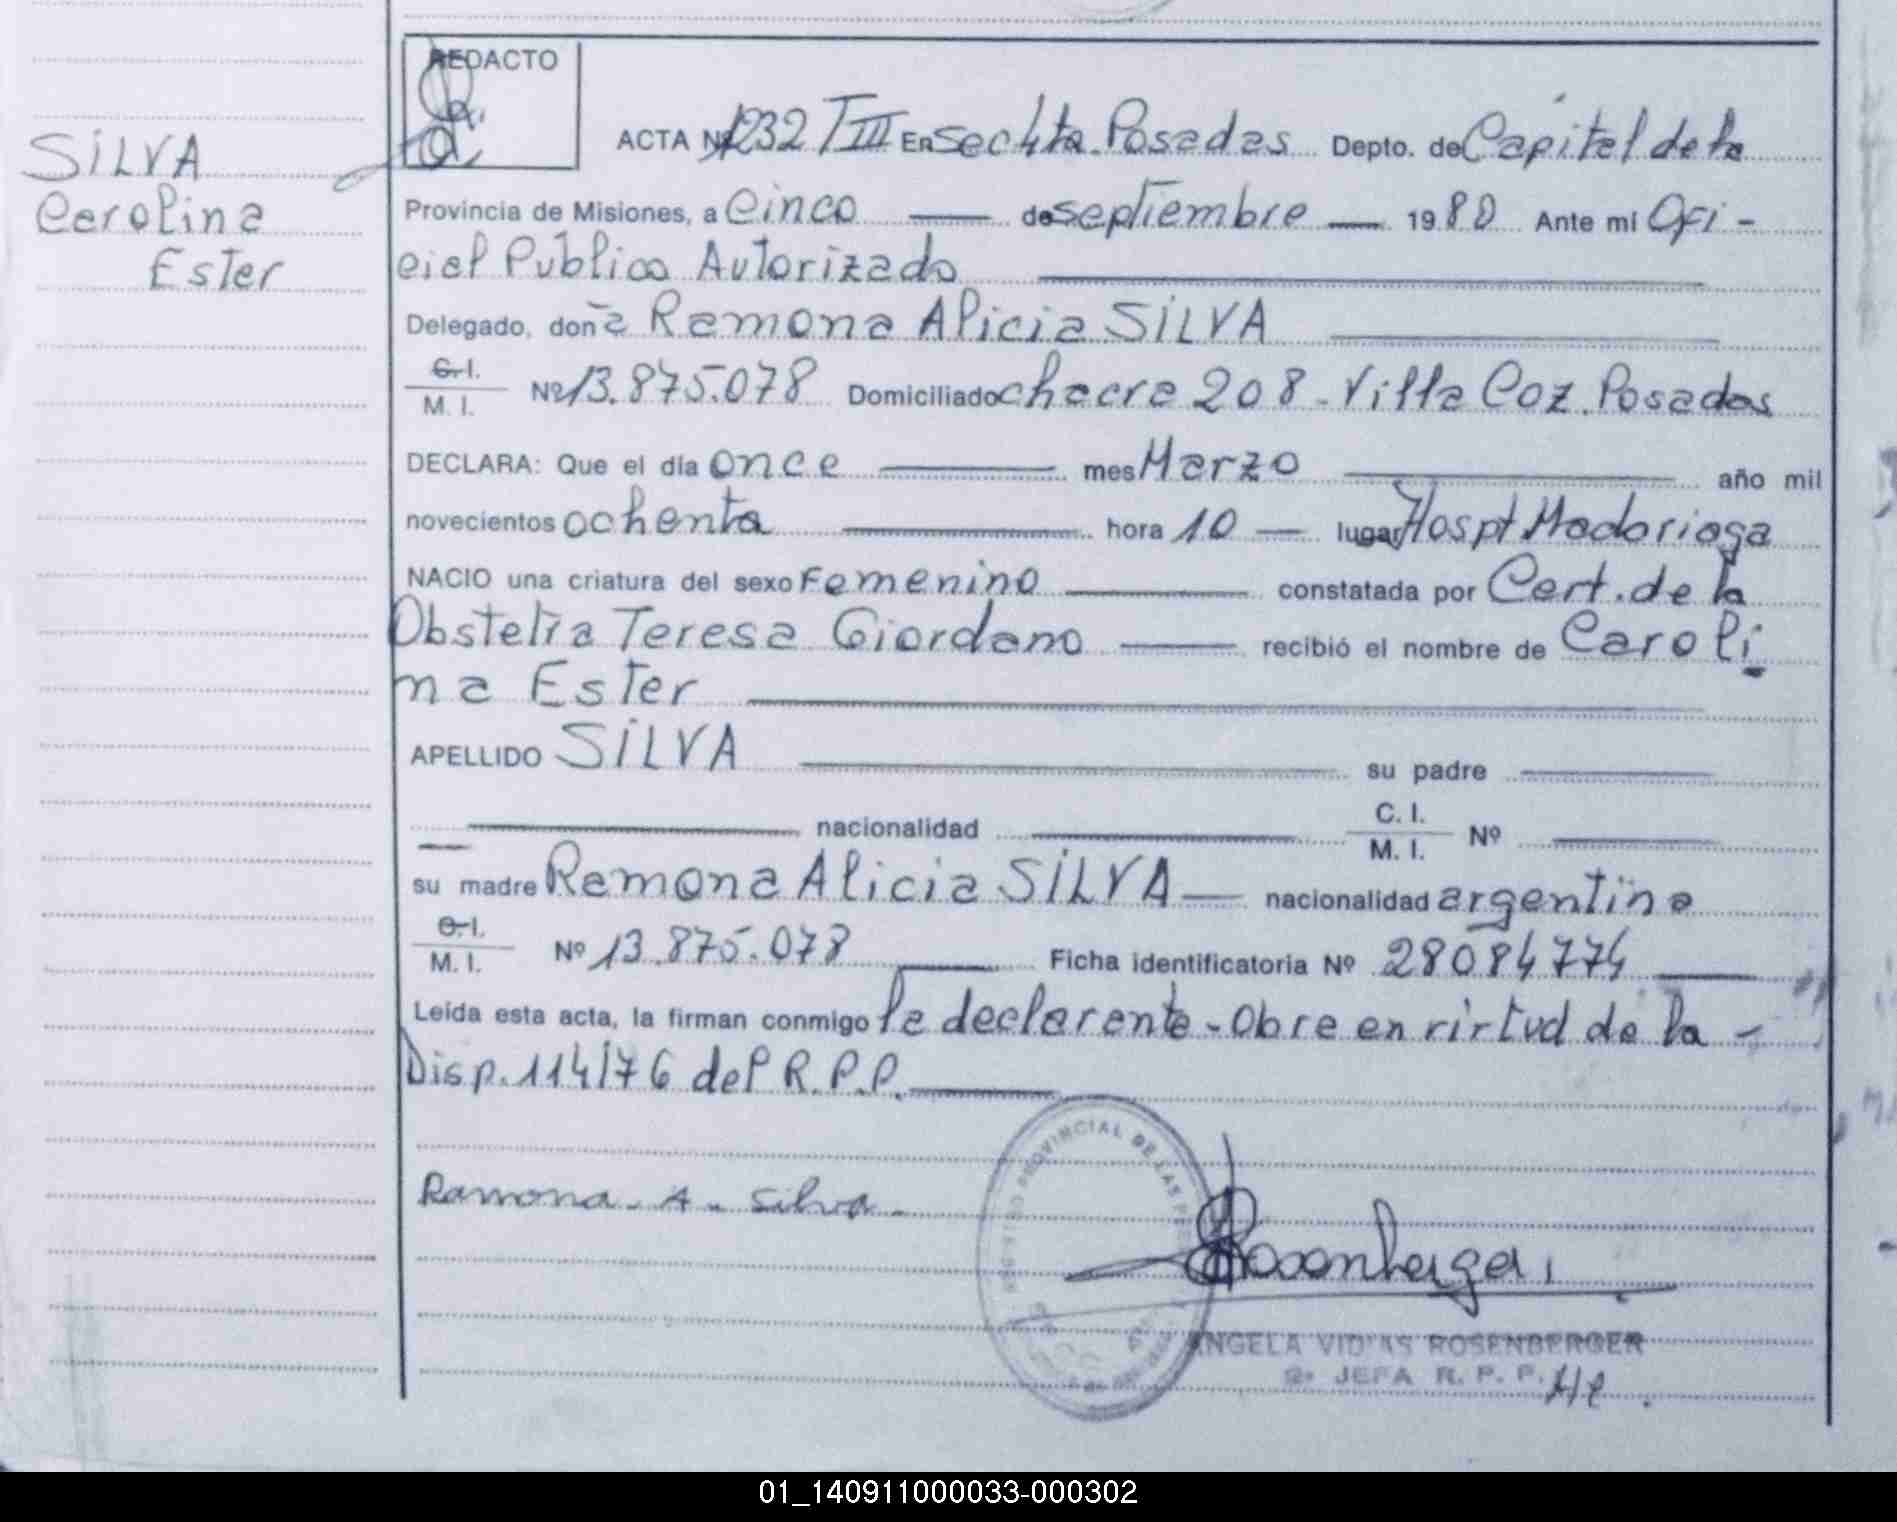 REDACTO
SILVA
Carolina
Ester
ACTA Nº 1232 T III En Sec 4ta. Posadas Depto. de Capital de la
Provincia de Misiones, a Cinco de septiembre 1980 Ante mi Ofi-
cial Publico Autorizado
Delegado, doña Ramona Alicia SILVA
C.I. M.I. Nº 13.875.078 Domiciliado chacra 208 - Villa Coz. Posadas
DECLARA: Que el día once mes Marzo año mil
novecientos ochenta hora 10 lugar Hospt Madariaga
NACIO una criatura del sexo Femenino constatada por Cert. de la
Obstetra Teresa Giordano recibió el nombre de Caroli
na Ester
APELLIDO SILVA su padre
nacionalidad C.I. M.I. Nº
su madre Ramona Alicia SILVA nacionalidad argentina
C.I. M.I. Nº 13.875.078 Ficha identificatoria Nº 28084774
Leída esta acta, la firman conmigo la declarante - Obre en virtud de la -
Disp. 114/76 del R.P.P.
Ramona - A - Silva -
PROVINCIAL DE LAS
Rosenberger
ANGELA ROSENBERGER
2ª JEFA R. P. P.
01_140911000033-000302